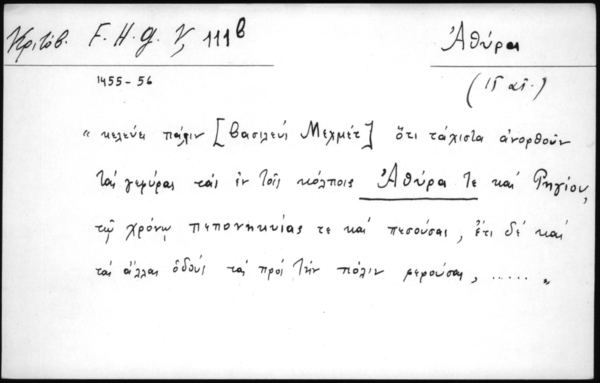 Κριτόβ. F.H.G. V, 111β Ἀθύρας
1455-56 (15 αἰ.)
„ κελεύει πάλιν [βασιλεύς Μεχμέτ] ὅτι τάχιστα ἀνορθοῦν
τάς γεφύρας τάς ἐν τοῖς κόλποις Ἀθύρα τε καί Ρηγίου,
τῷ χρόνῳ πεπονηκυίας τε καί πεσούσας, ἔτι δέ καί
τάς ἄλλας ὁδούς τάς πρός τήν πόλιν φερούσας, ..... „